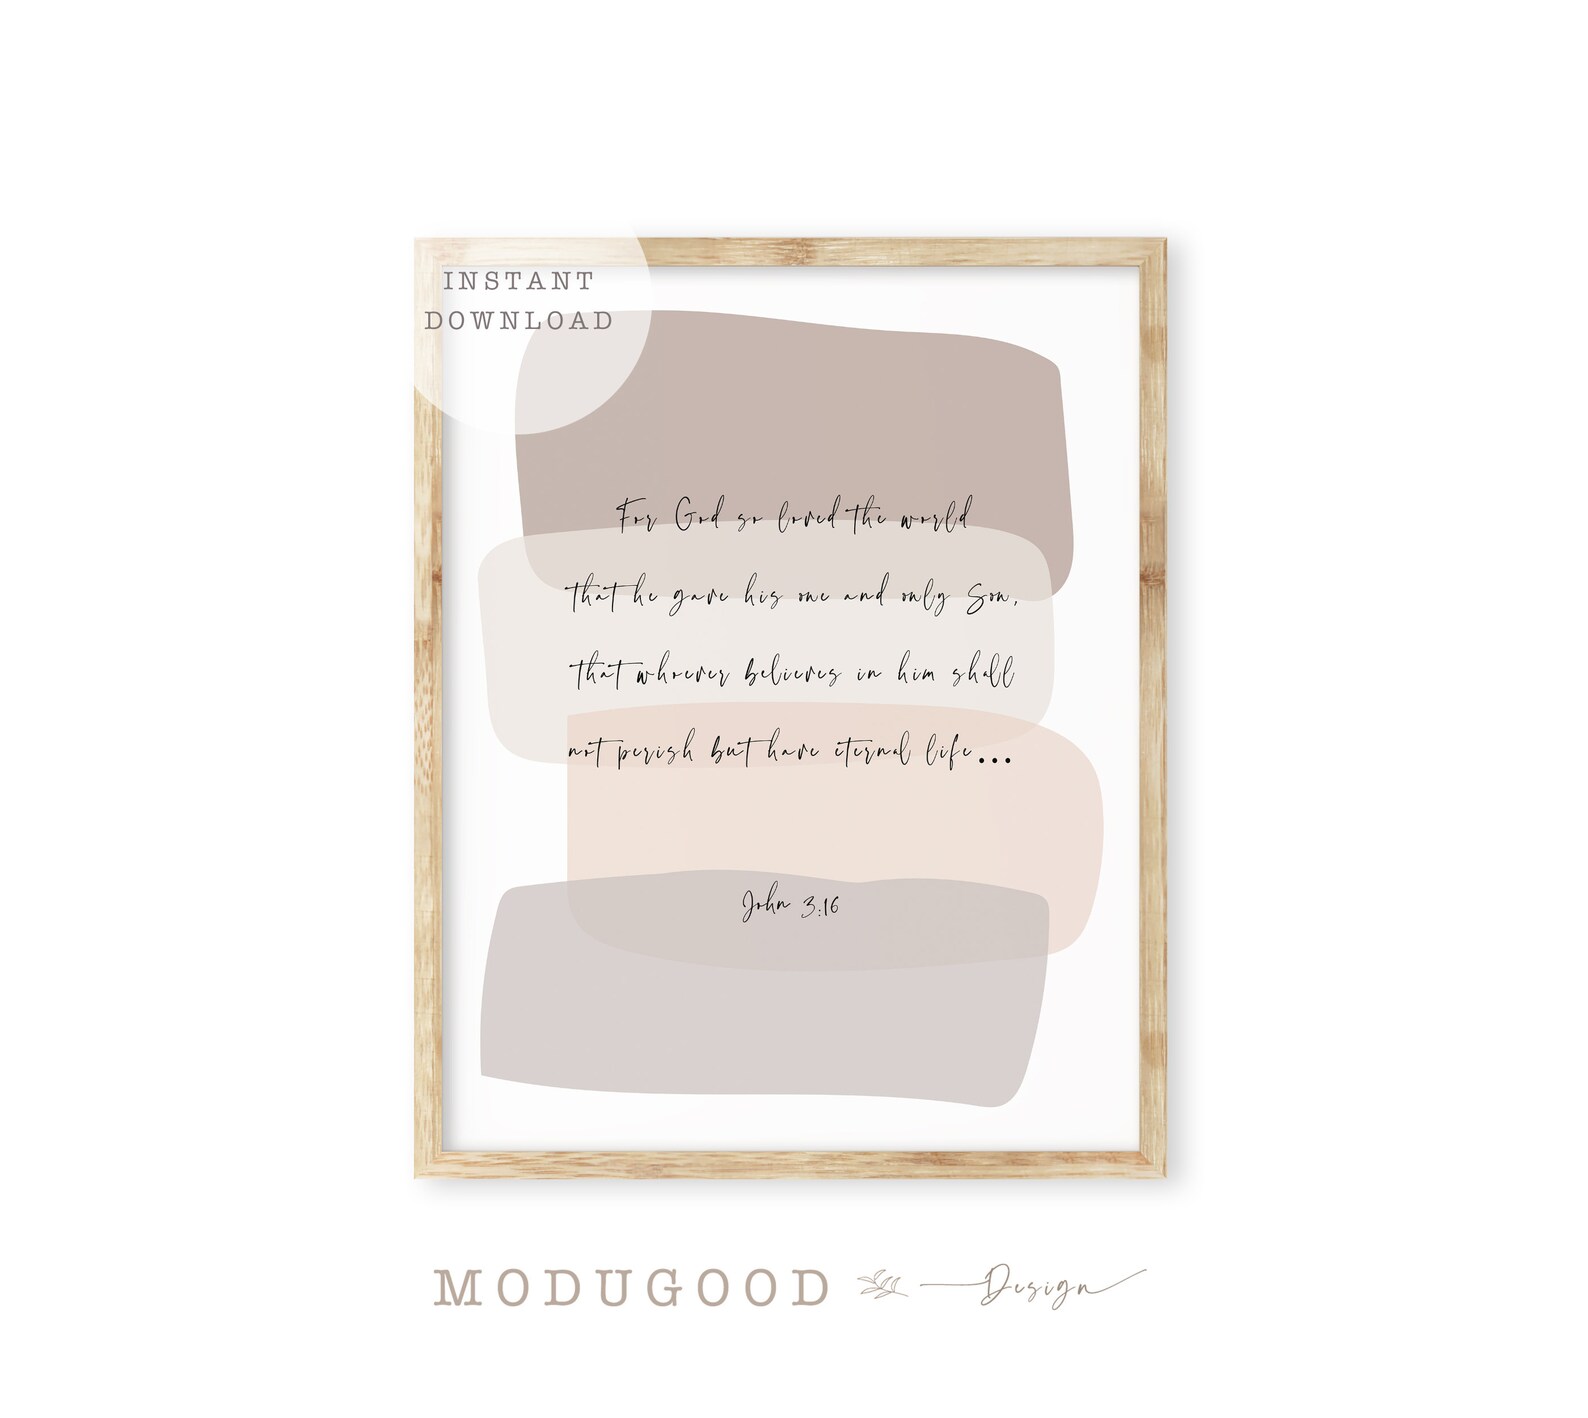 INSTANT
DOWNLOAD
For God so loved the world
that he gave his one and only Son,
that whoever believes in him shall
not perish but have eternal life...
John 3:16
MODUGOOD Design